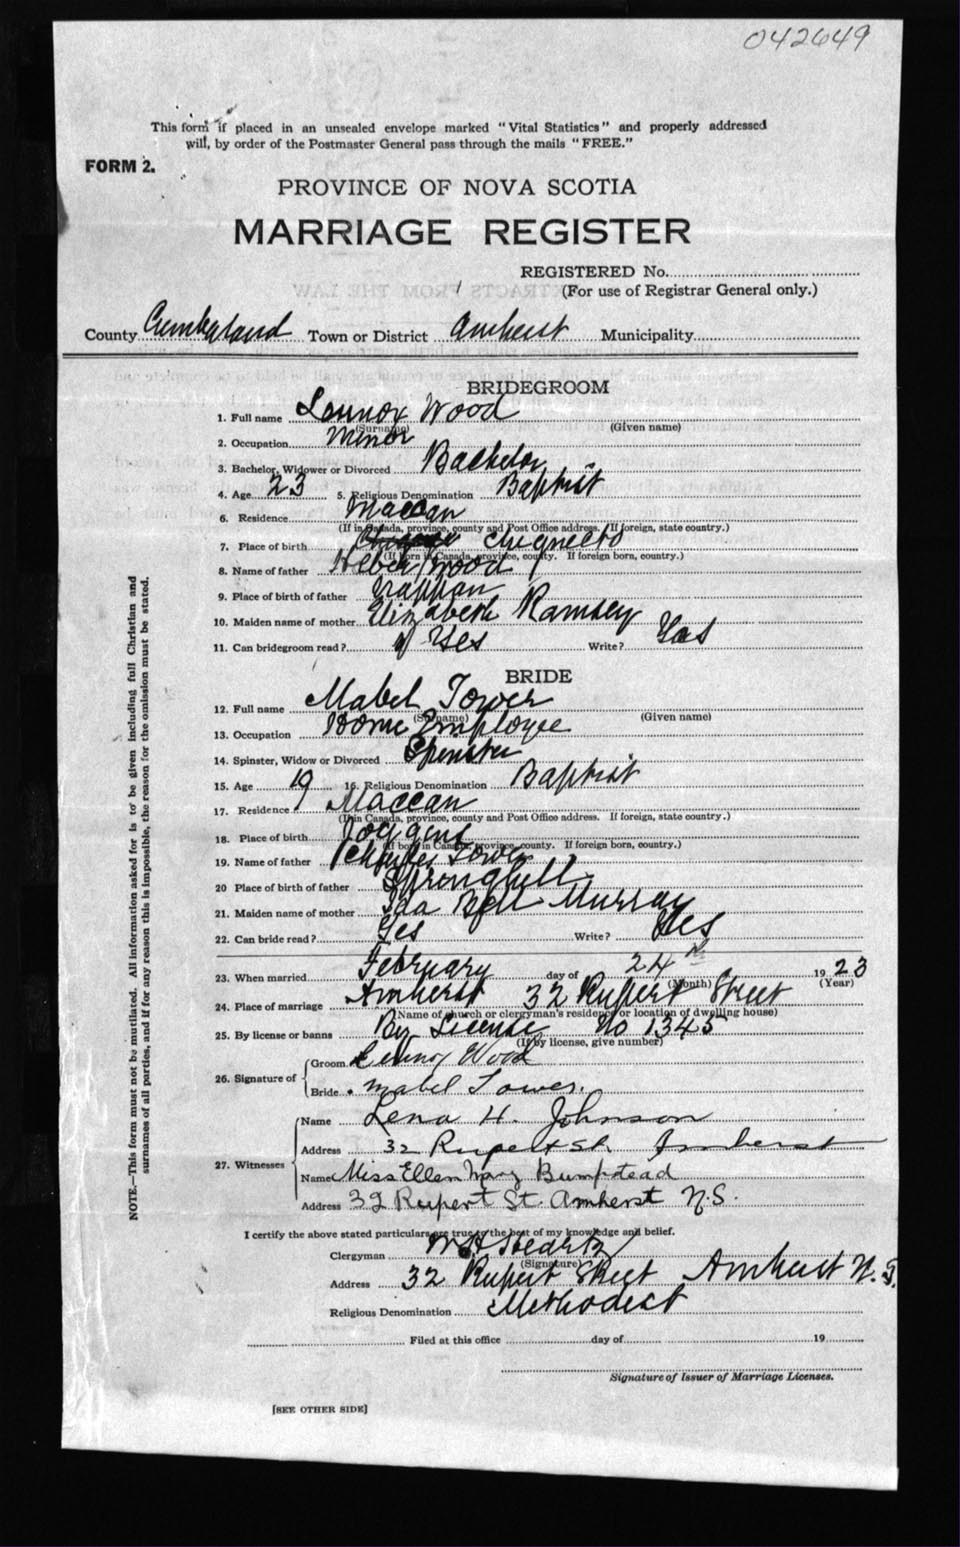 042649
This form if placed in an unsealed envelope marked "Vital Statistics" and properly addressed
will, by order of the Postmaster General pass through the mails "FREE."
FORM 2.
PROVINCE OF NOVA SCOTIA
MARRIAGE REGISTER
REGISTERED No.
(For use of Registrar General only.)
County Cumberland Town or District Amherst Municipality
BRIDEGROOM
1. Full name Lennox Wood
(Surname) (Given name)
2. Occupation Minor
3. Bachelor, Widower or Divorced Bachelor
4. Age 23 5. Religious Denomination Baptist
6. Residence Maccan
(If in Canada, province, county and Post Office address. If foreign, state country.)
7. Place of birth Chignecto
(If born in Canada, province, county. If foreign born, country.)
8. Name of father Heber Wood
9. Place of birth of father Nappan
10. Maiden name of mother Elizabeth Ramsey
11. Can bridegroom read? Yes Write? Yes
BRIDE
12. Full name Mabel Tower
(Surname) (Given name)
13. Occupation Home Employee
14. Spinster, Widow or Divorced Spinster
15. Age 19 16. Religious Denomination Baptist
17. Residence Maccan
(If in Canada, province, county and Post Office address. If foreign, state country.)
18. Place of birth Joggins
(If born in Canada, province, county. If foreign born, country.)
19. Name of father Charles Tower
20 Place of birth of father Springhill
21. Maiden name of mother Ida Bell Murray
22. Can bride read? Yes Write? Yes
23. When married February day of 24th 1923
(Month) (Year)
24. Place of marriage Amherst 32 Rupert Street
(Name of church or clergyman's residence or location of dwelling house)
25. By license or banns By License No 1345
(If by license, give number)
26. Signature of Groom Lennox Wood
Bride Mabel Tower.
27. Witnesses Name Lena H. Johnson
Address 32 Rupert St. Amherst
Name Miss Ellen Mary Bumpstead
Address 32 Rupert St. Amherst N.S.
I certify the above stated particulars are true to the best of my knowledge and belief.
Clergyman
(Signature)
Address 32 Rupert Street Amherst N.S.
Religious Denomination Methodist
Filed at this office day of 19
Signature of Issuer of Marriage Licenses.
[SEE OTHER SIDE]
NOTE.—This form must not be mutilated. All information asked for is to be given including full Christian and
surnames of all parties, and if for any reason this is impossible, the reason for the omission must be stated.